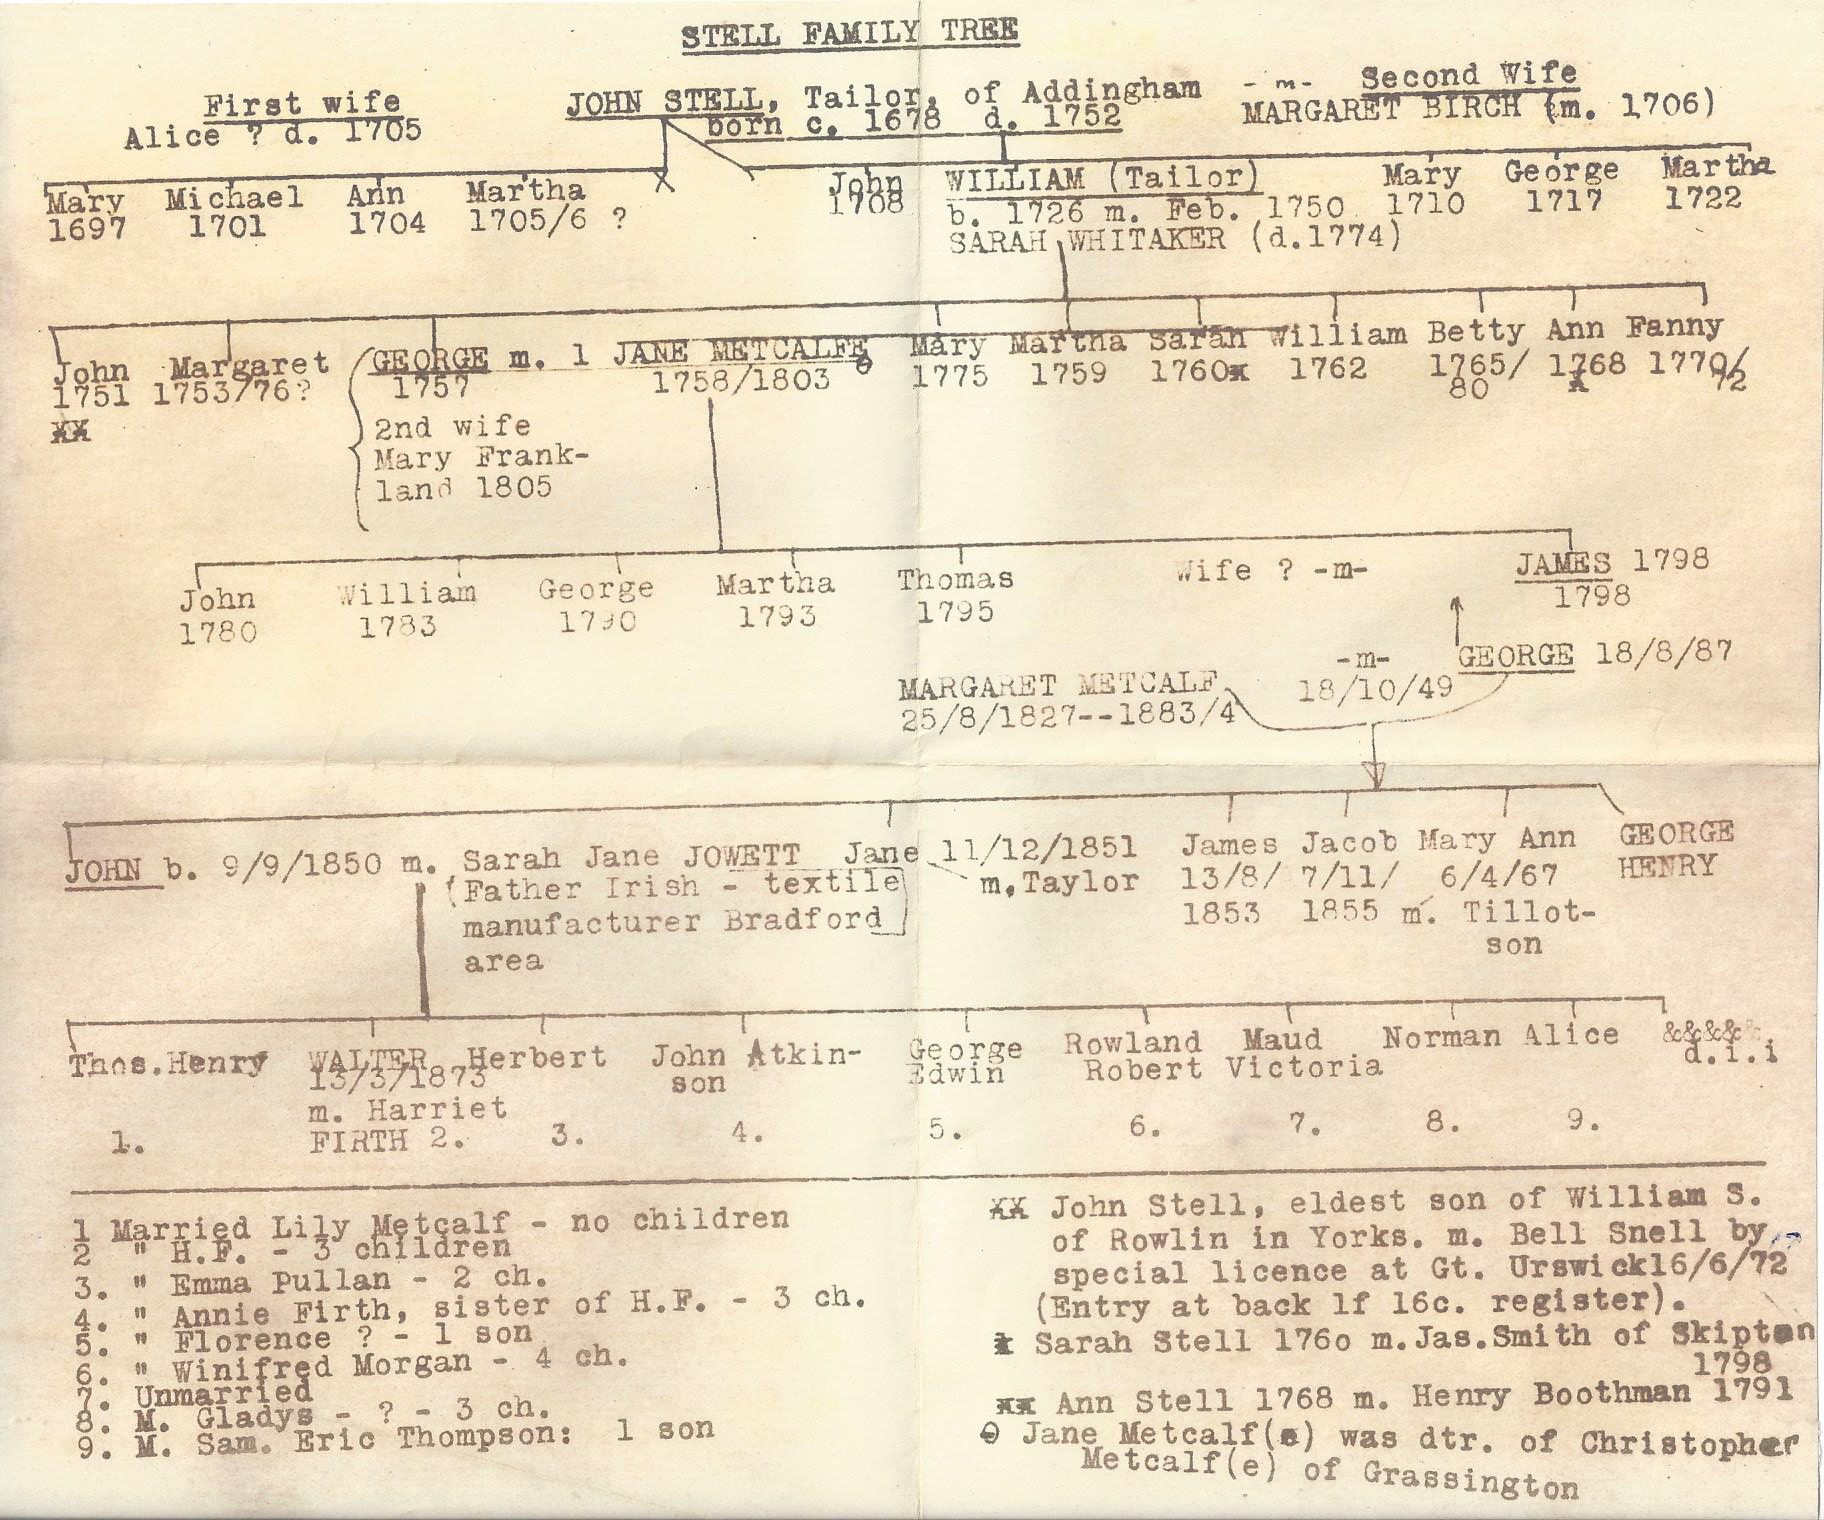 STELL FAMILY TREE
First wife
Alice ? d. 1705
JOHN STELL, Tailor, of Addingham
born c. 1678 d. 1752
-m- Second Wife
MARGARET BIRCH (m. 1706)
Mary Michael Ann Martha
1697 1701 1704 1705/6 ?
X
John
1708
WILLIAM (Tailor)
b. 1726 m. Feb. 1750
SARAH WHITAKER (d.1774)
Mary George Martha
1710 1717 1722
John Margaret
1751 1753/76?
XX
GEORGE m. 1 JANE METCALFE
1757 1758/1803
2nd wife
Mary Frank-
land 1805
Mary Martha Sarah William Betty Ann Fanny
1775 1759 1760x 1762 1765/ 1768 1770/
80 72
John William George Martha Thomas
1780 1783 1790 1793 1795
Wife ? -m- JAMES 1798
1798
-m- GEORGE 18/8/87
MARGARET METCALF 18/10/49
25/8/1827--1883/4
JOHN b. 9/9/1850 m. Sarah Jane JOWETT
(Father Irish - textile
manufacturer Bradford
area
Jane 11/12/1851
m.Taylor
James Jacob Mary Ann
13/8/ 7/11/ 6/4/67
1853 1855 m. Tillot-
son
GEORGE
HENRY
Thos.Henry WALTER Herbert John Atkin- George Rowland Maud Norman Alice &&&&&
13/3/1873 son Edwin Robert Victoria d.i.i
m. Harriet
1. FIRTH 2. 3. 4. 5. 6. 7. 8. 9.
1 Married Lily Metcalf - no children
2 " H.F. - 3 children
3. " Emma Pullan - 2 ch.
4. " Annie Firth, sister of H.F. - 3 ch.
5. " Florence ? - 1 son
6. " Winifred Morgan - 4 ch.
7. Unmarried
8. M. Gladys - ? - 3 ch.
9. M. Sam. Eric Thompson: 1 son
XX John Stell, eldest son of William S.
of Rowlin in Yorks. m. Bell Snell by
special licence at Gt. Urswick16/6/72
(Entry at back lf 16c. register).
x Sarah Stell 176o m.Jas.Smith of Skipton
1798
xx Ann Stell 1768 m. Henry Boothman 1791
Θ Jane Metcalf(e) was dtr. of Christopher
Metcalf(e) of Grassington